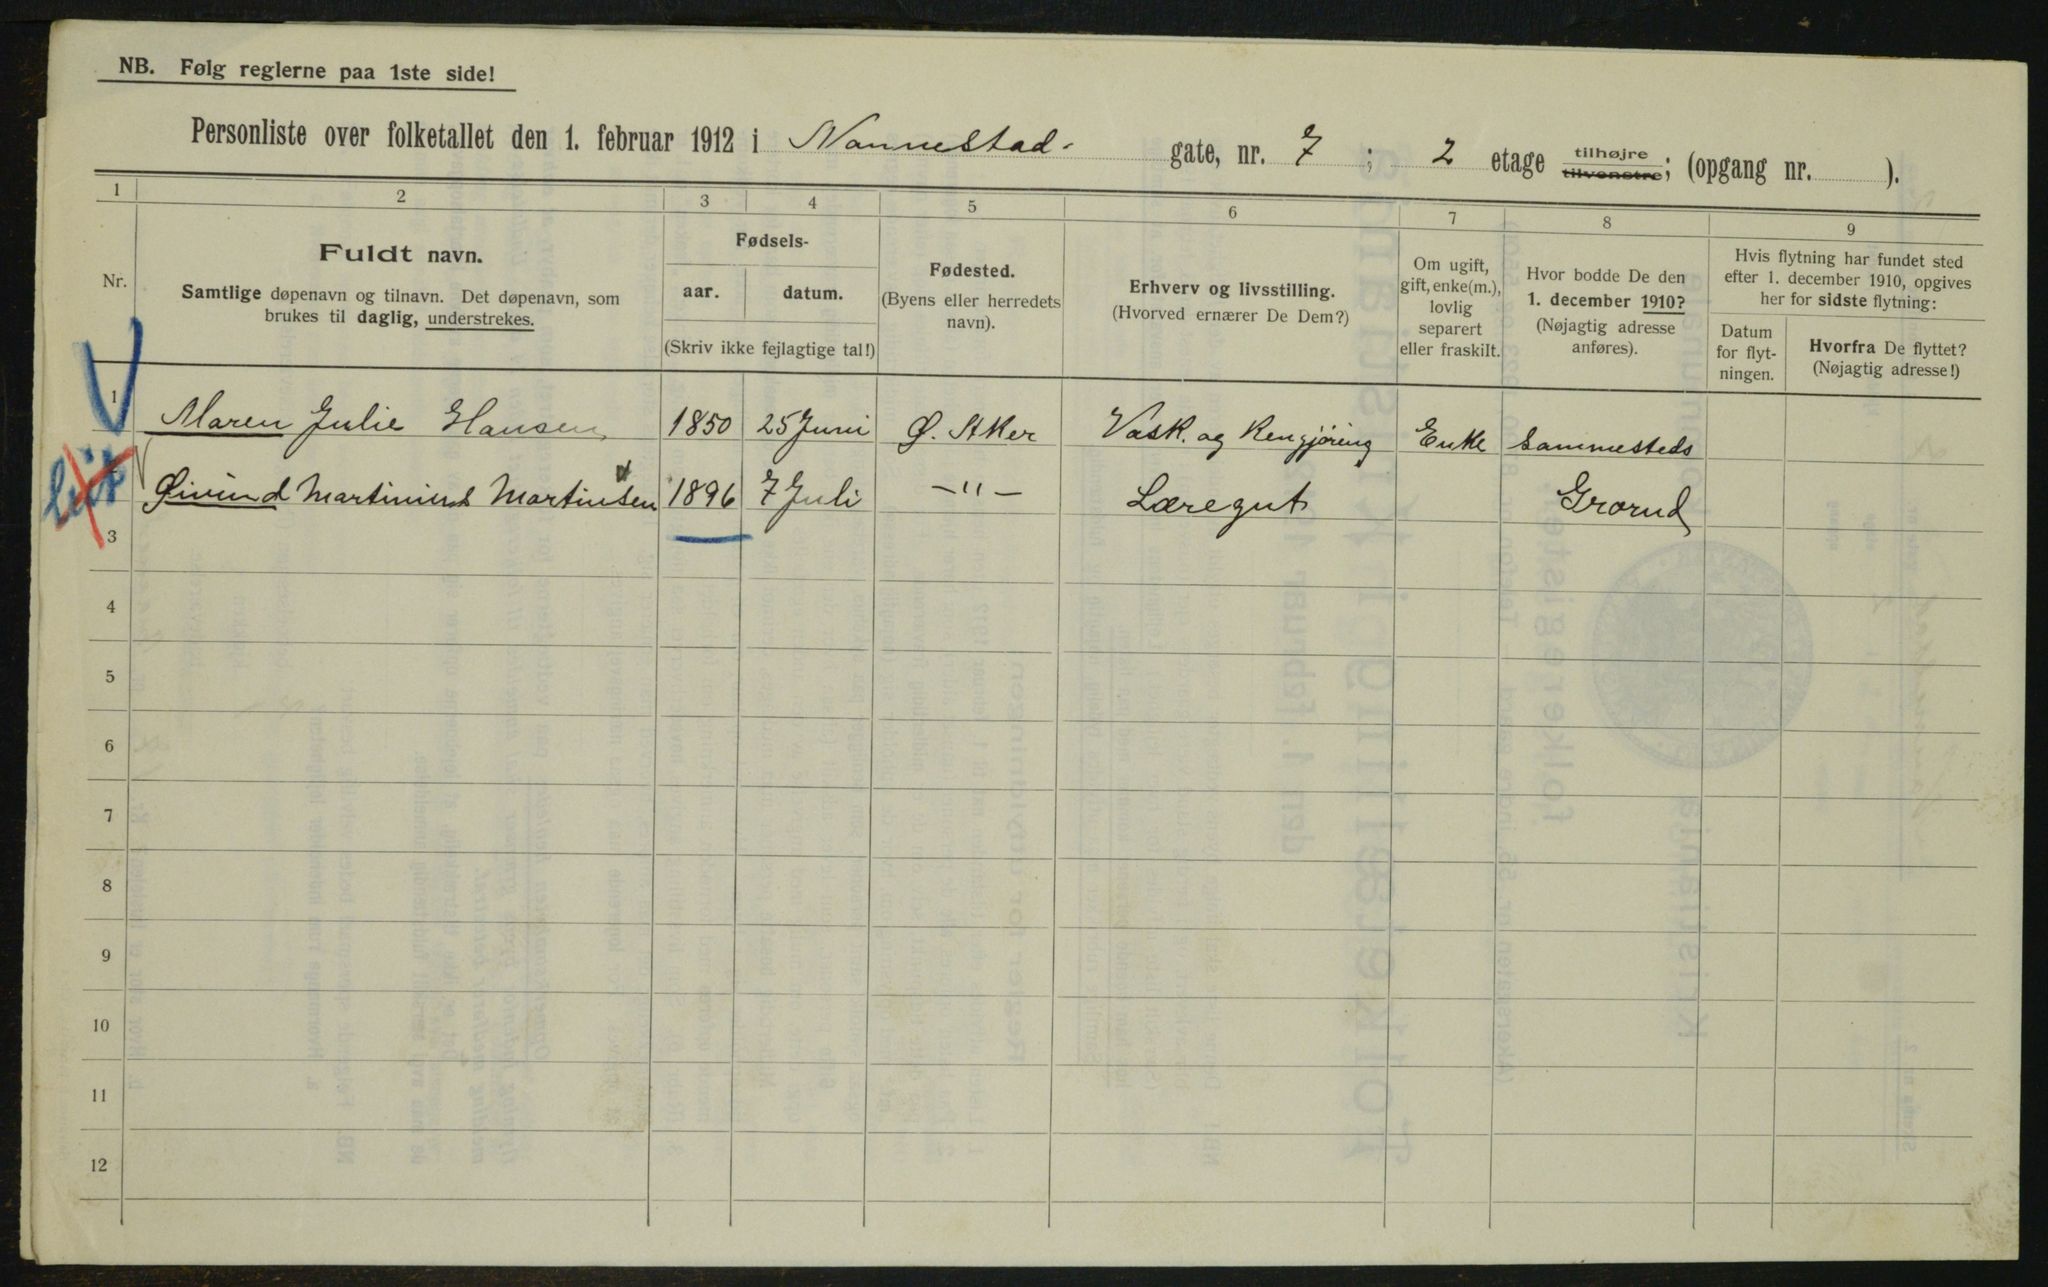 NB. Følg reglerne paa 1ste side!
Personliste over folketallet den 1. februar 1912 i Nannestad- gate, nr. 7 ; 2 etage tilhøjre tilvenstre; (opgang nr. ).
1 2 3 4 5 6 7 8 9
Nr.
Fuldt navn.
Samtlige døpenavn og tilnavn. Det døpenavn, som
brukes til daglig, understrekes.
Fødsels-
aar. datum.
(Skriv ikke fejlagtige tal!)
Fødested.
(Byens eller herredets
navn).
Erhverv og livsstilling.
(Hvorved ernærer De Dem?)
Om ugift,
gift, enke(m.),
lovlig
separert
eller fraskilt.
Hvor bodde De den
1. december 1910?
(Nøjagtig adresse
anføres).
Hvis flytning har fundet sted
efter 1. december 1910, opgives
her for sidste flytning:
Datum
for flyt-
ningen.
Hvorfra De flyttet?
(Nøjagtig adresse!)
1 Maren Julie Hansen 1850 25 Juni Ø. Aker Vask. og Rengjøring Enke Sammesteds
Øivind Martinius Martinsen 1896 7 Juli -"- Læregut Grorud
3
4
5
6
7
8
9
10
11
12